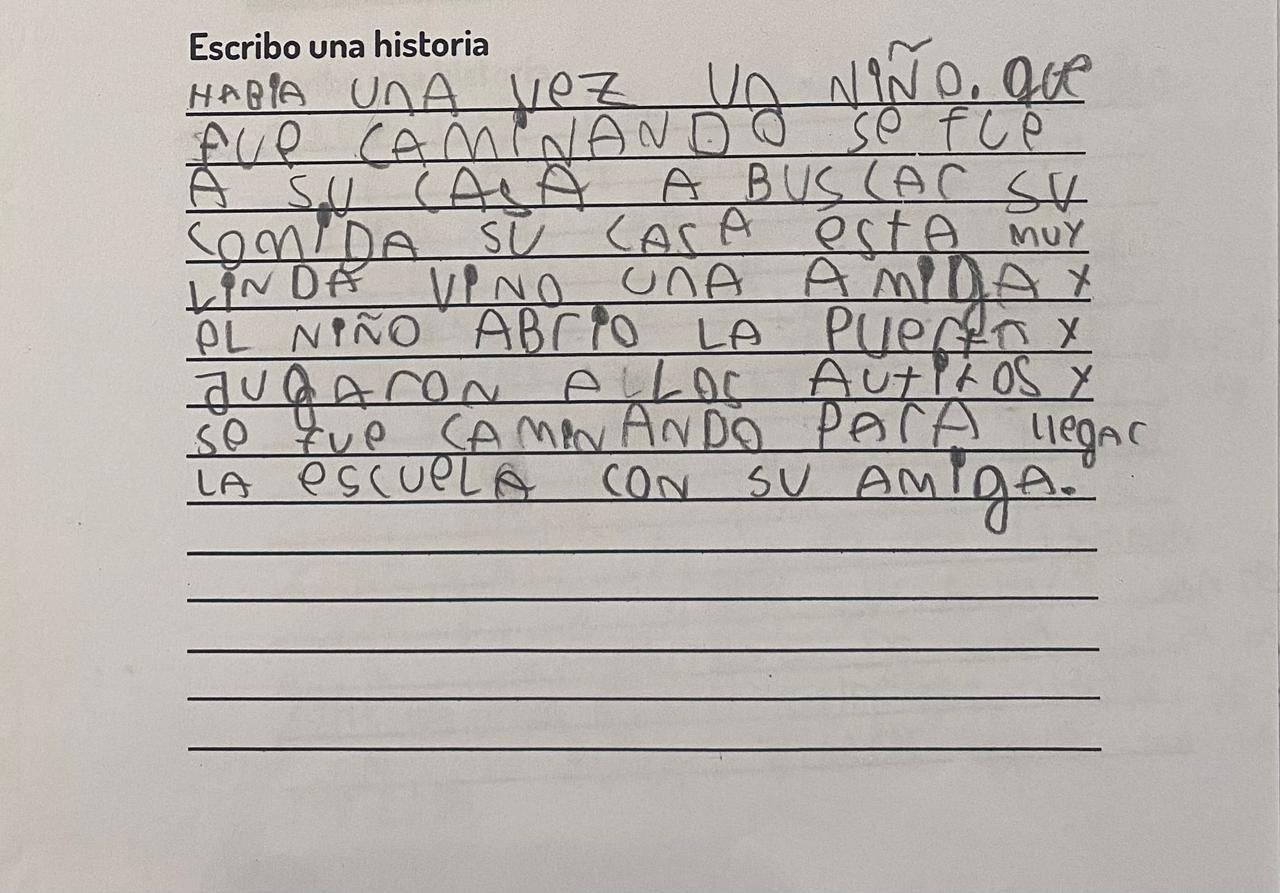 Escribo una historia
HABIA UNA VEZ UN NIÑO. que
fue CAMINANDO se fue
A SU CASA A BUSCAr SU
COMIDA SU CASA estA MUY
LINDA VINO UNA AMIDA Y
eL NIÑO ABrIO LA PUertA Y
JUgAroN A LOS AUtitOS Y
se fue CAMINANDO PArA llegAr
LA esCUeLA CON SU AMIgA.